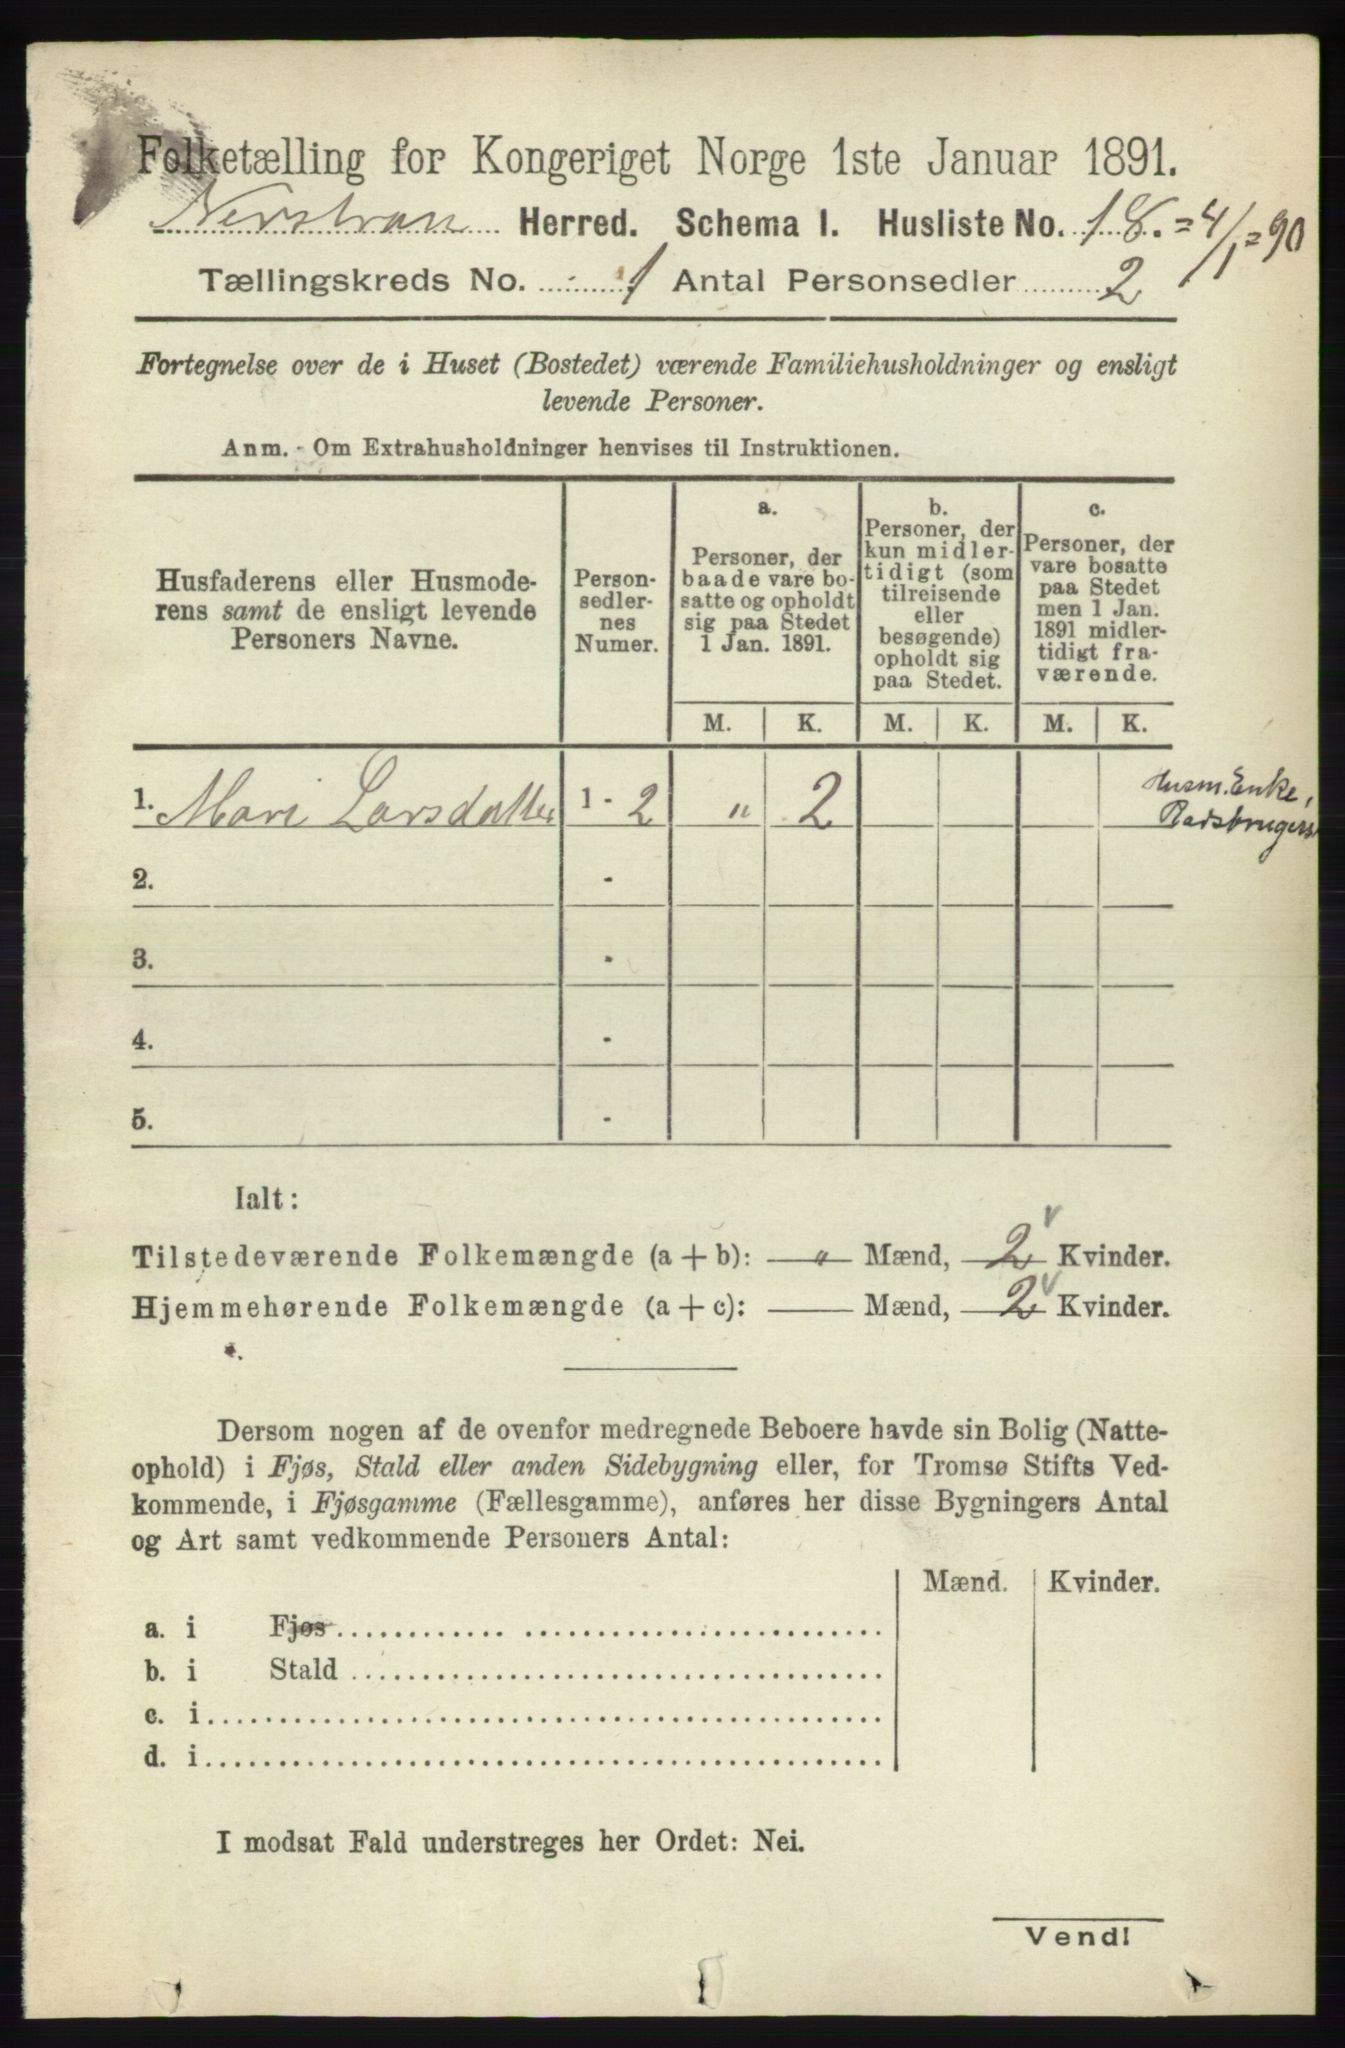 Folketælling for Kongeriget Norge 1ste Januar 1891.
Nerstran Herred. Schema I. Husliste No. 18. = 4/1 = 90
Tællingskreds No. 1 Antal Personsedler 2
Fortegnelse over de i Huset (Bostedet) værende Familiehusholdninger og ensligt
levende Personer.
Anm. - Om Extrahusholdninger henvises til Instruktionen.
Husfaderens eller Husmode-
rens samt de ensligt levende
Personers Navne.
Person-
sedler-
nes
Numer.
a.
Personer, der
baade vare bo-
satte og opholdt
sig paa Stedet
1 Jan. 1891.
b.
Personer, der
kun midler-
tidigt (som
tilreisende
eller
besøgende)
opholdt sig
paa Stedet.
c.
Personer, der
vare bosatte
paa Stedet
men 1 Jan.
1891 midler-
tidigt fra-
værende.
M. K. M. K. M. K.
1. Mari Larsdatter 1 - 2 " 2
Husm. Enke,
2. -
3. -
4. -
5. -
Ialt:
Tilstedeværende Folkemængde (a + b): " Mænd, 2 Kvinder.
Hjemmehørende Folkemængde (a + c): Mænd, 2 Kvinder.
Dersom nogen af de ovenfor medregnede Beboere havde sin Bolig (Natte-
ophold) i Fjøs, Stald eller anden Sidebygning eller, for Tromsø Stifts Ved-
kommende, i Fjøsgamme (Fællesgamme), anføres her disse Bygningers Antal
og Art samt vedkommende Personers Antal:
Mænd. Kvinder.
a. i Fjøs
b. i Stald
c. i
d. i
I modsat Fald understreges her Ordet: Nei.
Vend!